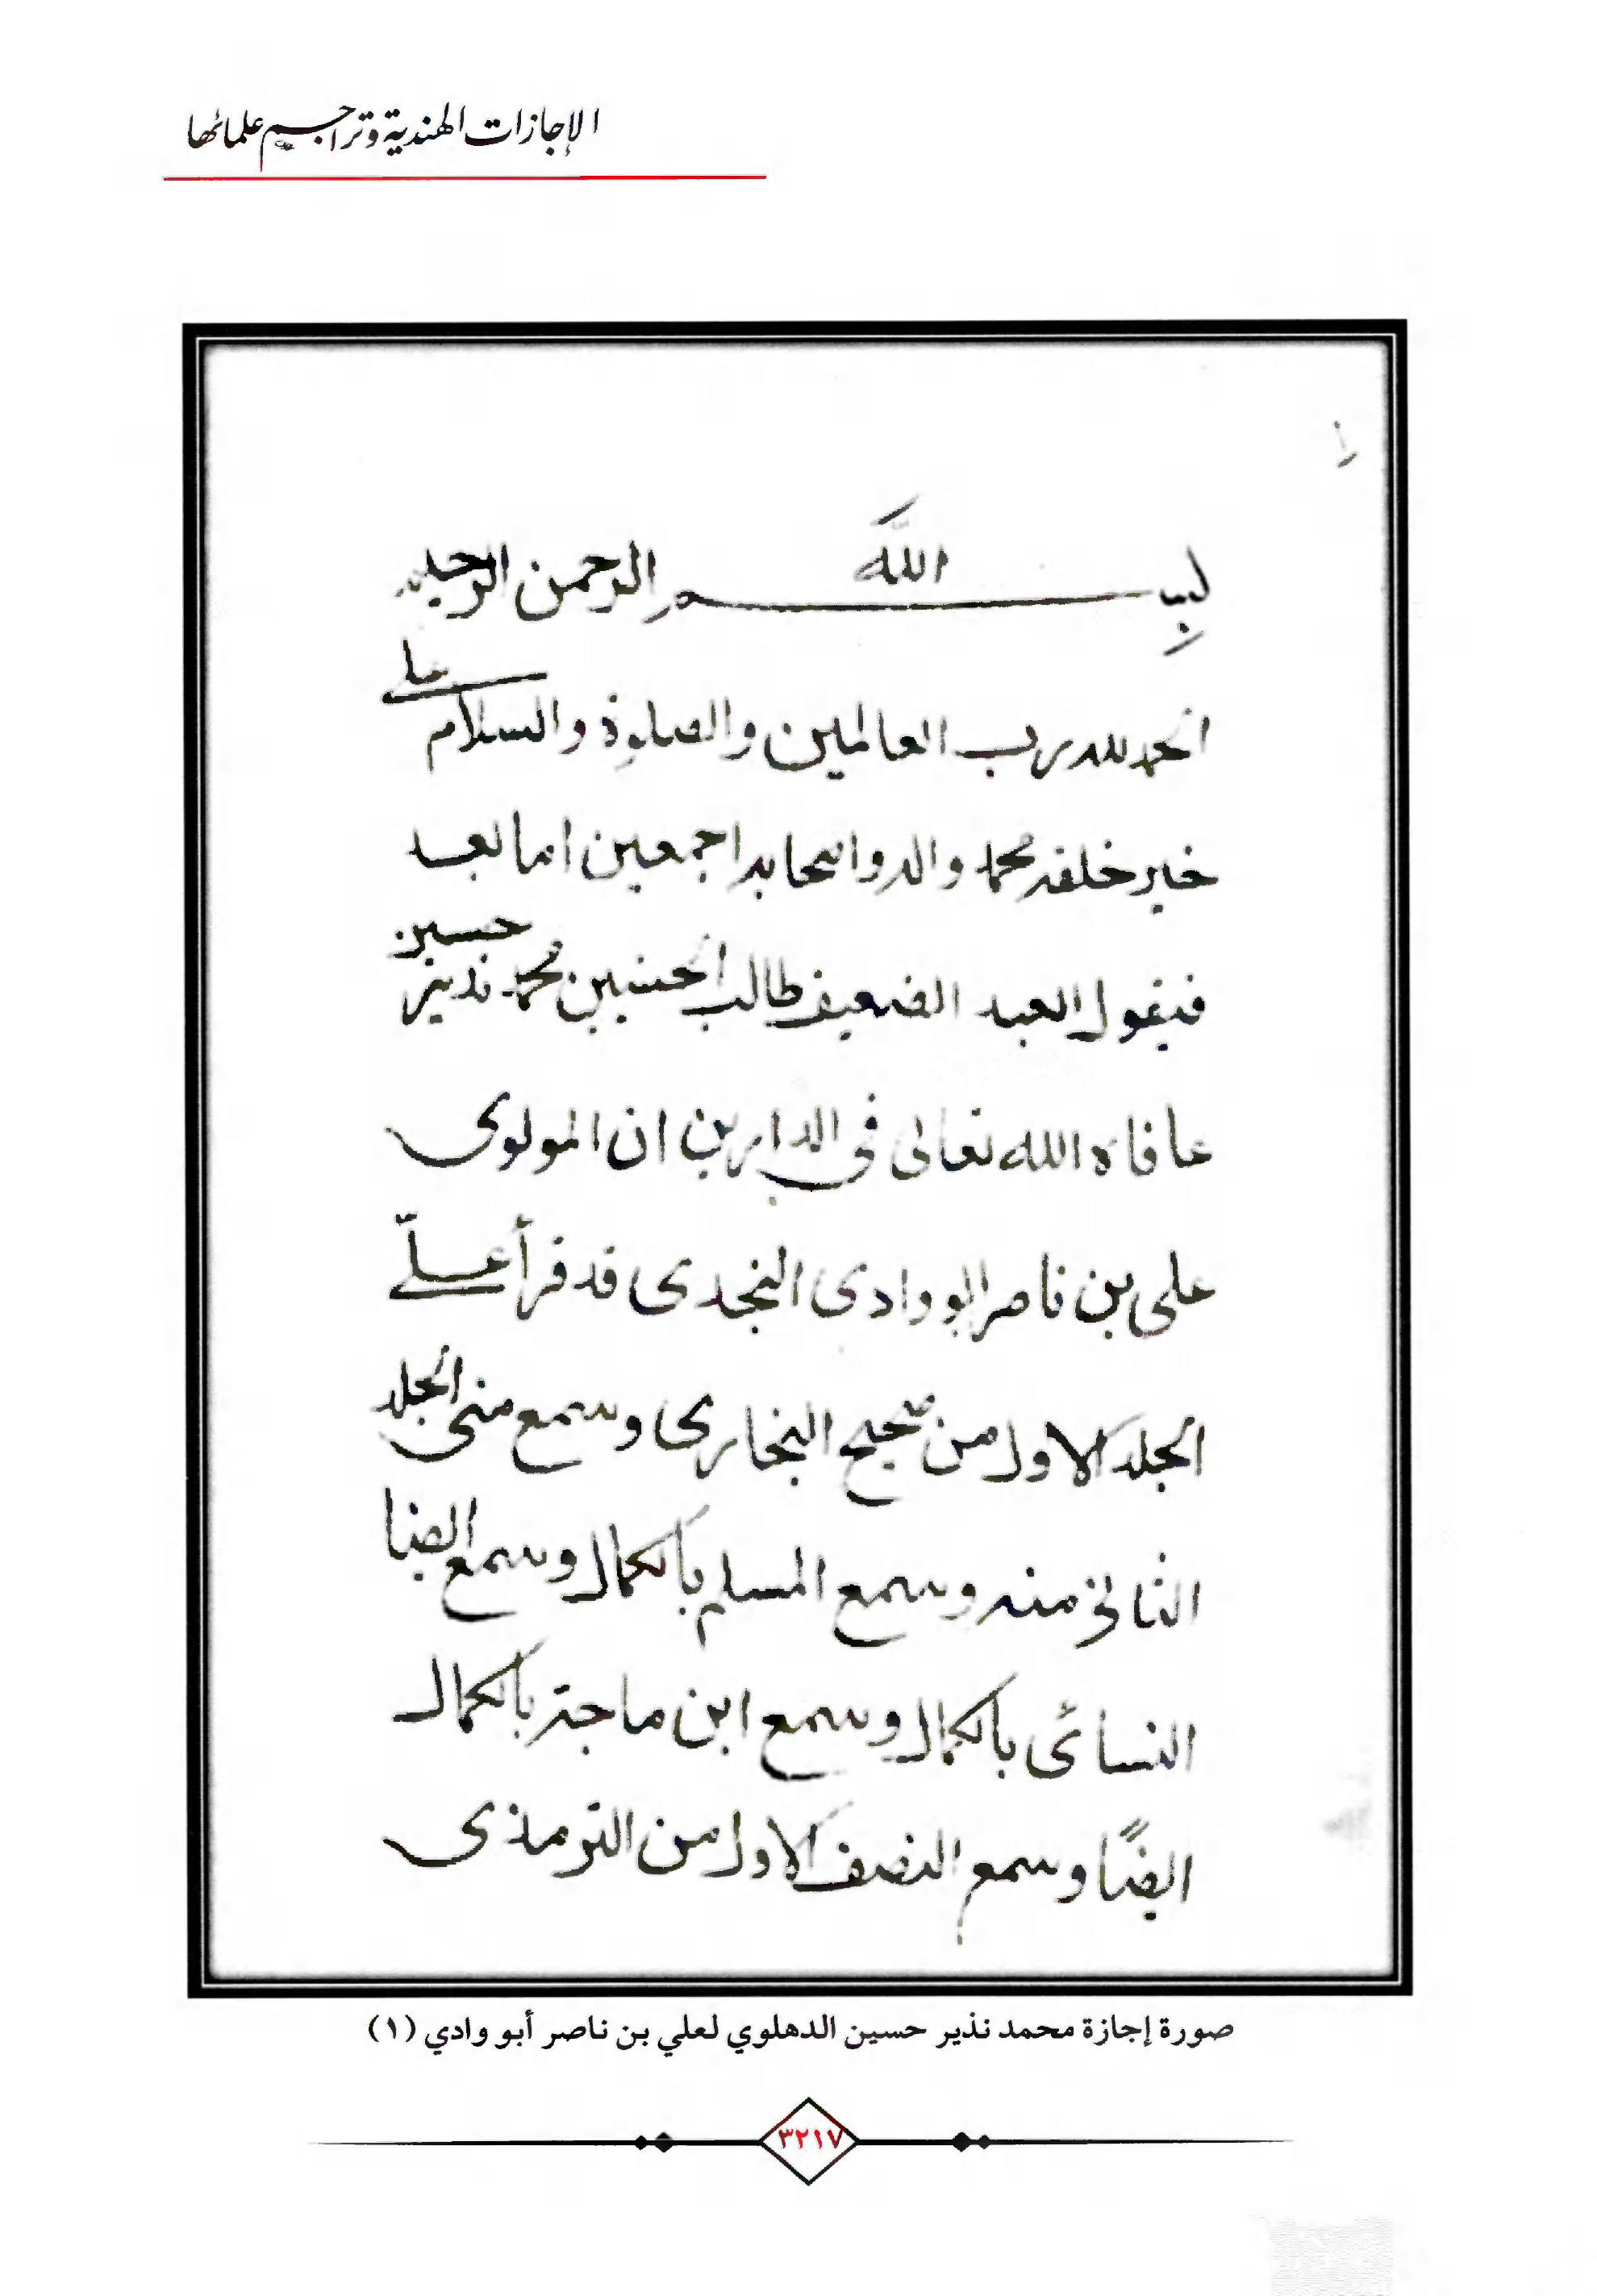 الإجازات الهندية وتراجم علمائها
بسم الله الرحمن الرحيم
الحمد لله رب العالمين والصلوة والسلام على
خير خلقه محمد واله واصحابه اجمعين اما بعد
فيقول العبد الضعيف طالب الحسنيين محمد نذير حسين
عافاه الله تعالى في الدارين ان المولوى
على بن ناصر ابو وادى النجدى قد قرأ علىّ
الجلد الاول من صحيح البخارى وسمع منى الجلد
الثانى منه وسمع المسلم بالكمال وسمع ايضا
النسائى بالكمال وسمع ابن ماجة بالكمال
ايضًا وسمع النصف الاول من الترمذى
صورة إجازة محمد نذير حسين الدهلوي لعلي بن ناصر أبو وادي (١)
٣٢١٧